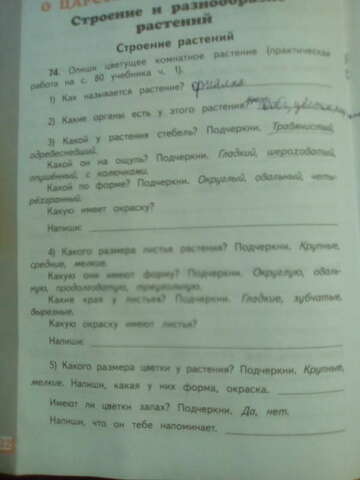 О ЦАРС
Строение и разнообраз
растений
Строение растений
74. Опиши цветущее комнатное растение (практическая
работа на с. 80 учебника ч. 1).
1) Как называется растение? фиалка
2) Какие органы есть у этого растения?
3) Какой у растения стебель? Подчеркни. Травянистый,
одревесневший.
Какой он на ощупь? Подчеркни. Гладкий, шероховатый,
опушённый, с колючками.
Какой по форме? Подчеркни. Округлый, овальный, четы-
рёхгранный.
Какую имеет окраску?
Напиши:
4) Какого размера листья растения? Подчеркни. Крупные,
средние, мелкие.
Какую они имеют форму? Подчеркни. Округлую, оваль-
ную, продолговатую, треугольную.
Какие края у листьев? Подчеркни. Гладкие, зубчатые,
вырезные.
Какую окраску имеют листья?
Напиши:
5) Какого размера цветки у растения? Подчеркни, Крупные,
мелкие. Напиши, какая у них форма, окраска.
Имеют ли цветки запах? Подчеркни. Да, нет.
Напиши, что он тебе напоминает.